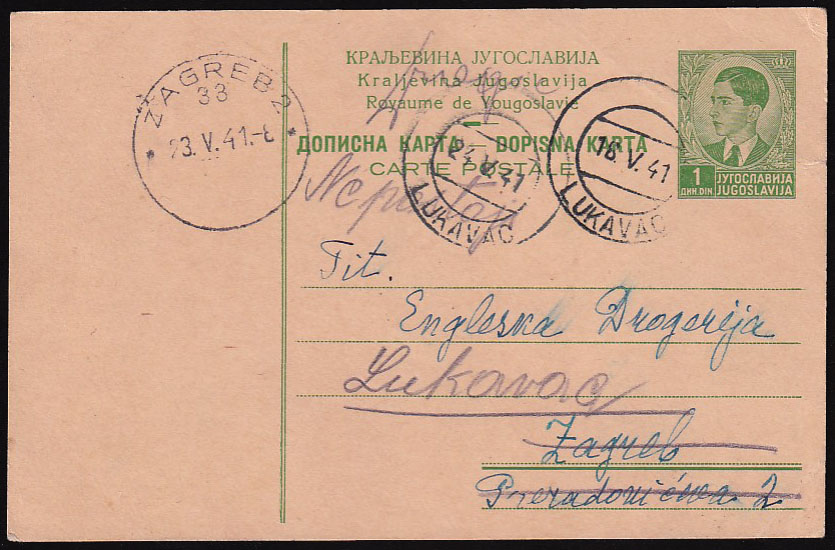 КРАЉЕВИНА ЈУГОСЛАВИЈА
Kraljevina Jugoslavija
Royaume de Yougoslavie
ДОПИСНА КАРТА — DOPISNA KARTA
CARTE POSTALE
1
ДИН. DIN.
ЈУГОСЛАВИЈА
JUGOSLAVIJA
ZAGREB 2
33
23.V.41.-8
24.V.41
LUKAVAC
16.V.41
LUKAVAC
Tit.
Engleska Drogerija
Lukavac
Zagreb
Preradovićeva 2